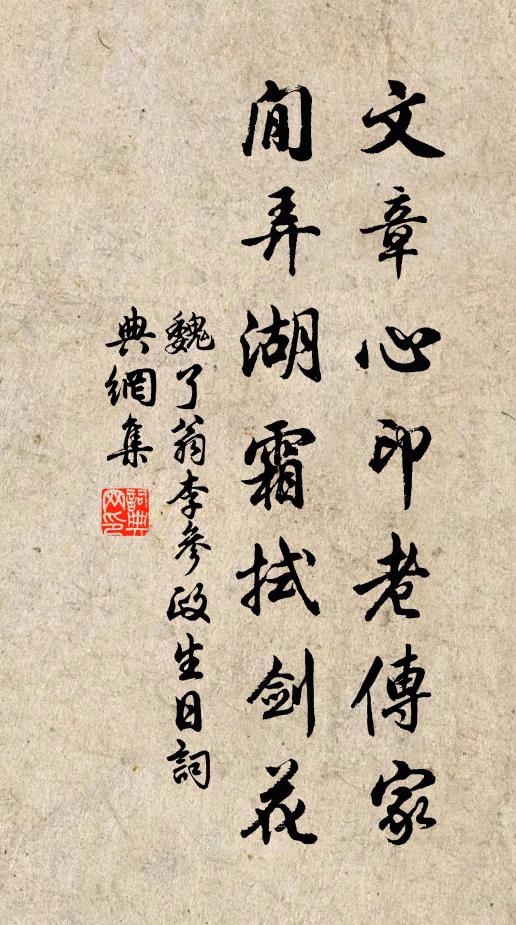 文章心印老傳家
閒弄湖霜拭劍花
魏了翁李參政生日詞
典網集
詞典網印